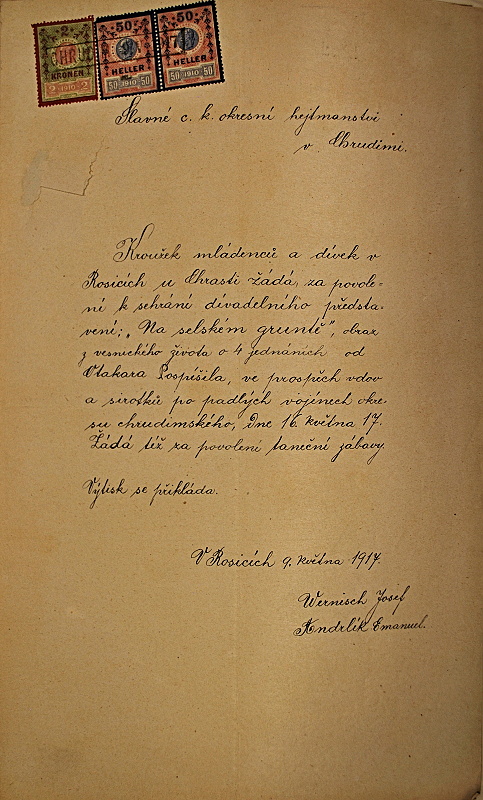 2
KRONEN
2 1910 2
50
HELLER
50 1910 50
50
HELLER
50 1910 50
Slavné c. k. okresní hejtmanství
v Chrudimi.
Kroužek mládenců a dívek v
Rosicích u Chrasti žádá, za povole-
ní k sehrání divadelního předsta-
vení; „Na selském gruntě", obraz
z vesnického života o 4 jednáních od
Otakara Pospíšila, ve prospěch vdov
a sirotků po padlých vojínech okre-
su chrudimského, dne 16. května 17.
Žádá též za povolení taneční zábavy.
Výtisk se přikládá.
V Rosicích 9. května 1917.
Wernisch Josef
Andrlík Emanuel.